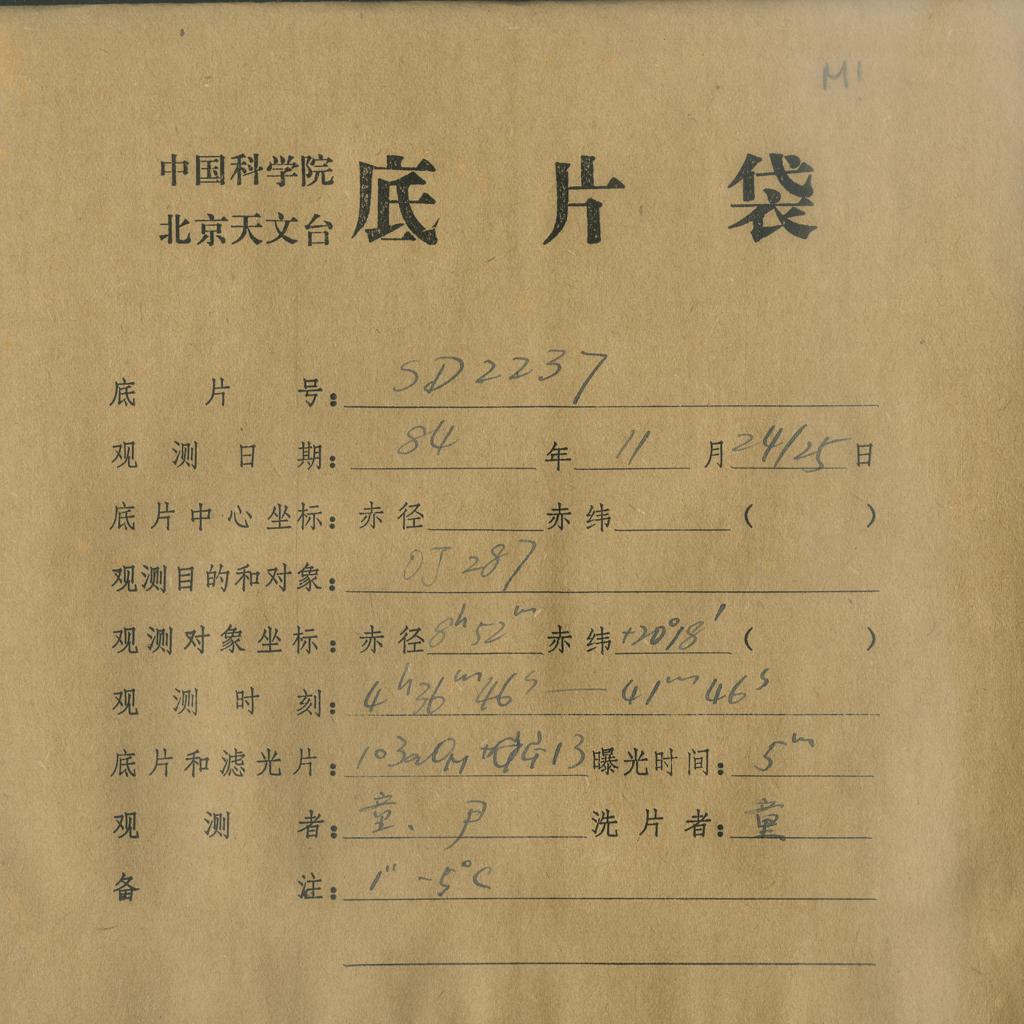 M1
中国科学院
北京天文台
底片袋
底片号：SD2237
观测日期：84年11月24/25日
底片中心坐标：赤径 赤纬 （ ）
观测目的和对象：OJ 287
观测对象坐标：赤径8h52m赤纬+20°18′（ ）
观测时刻：4h36m46s — 41m46s
底片和滤光片：103aO 13 曝光时间：5m
观测者：童、尹 洗片者：童
备注：1″ -5°C